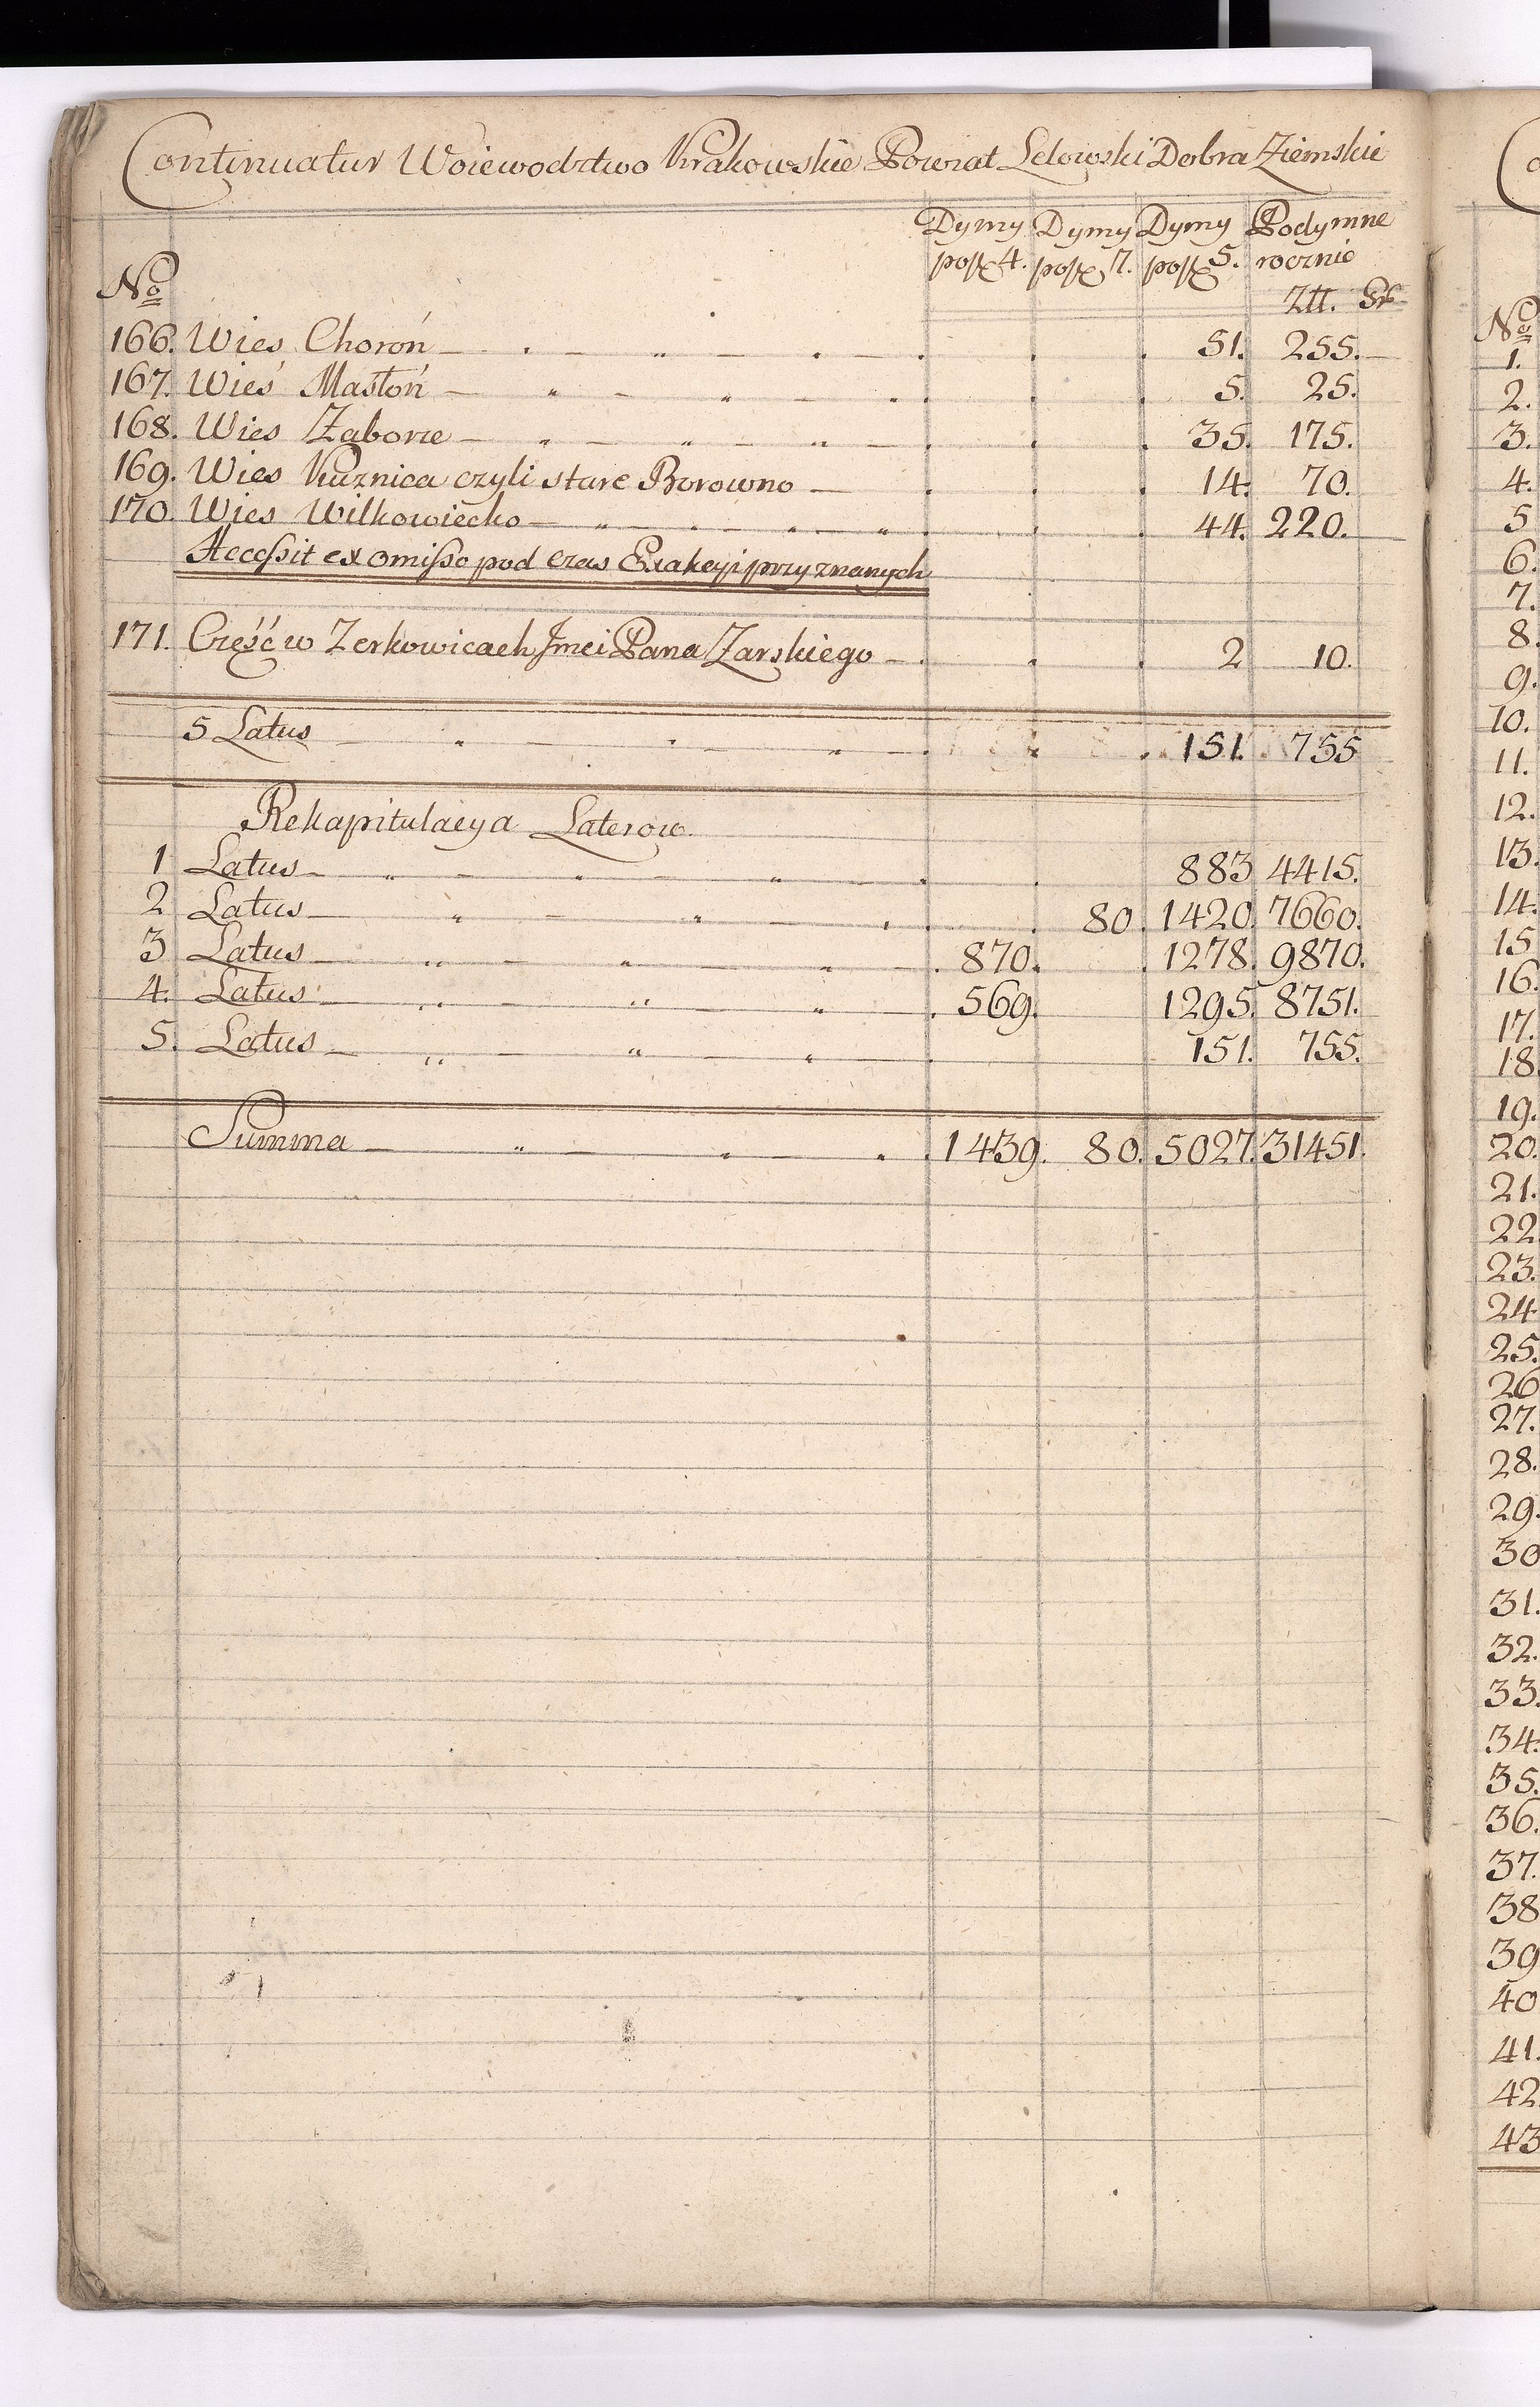 Continuatur Woiewodztwo Krakowskie Powiat Lelowski Dobra Ziemskie
Dymy Dymy Dymy Podymne
po fl 4. po fl 7. po fl 5. rocznie
No Złł. Gr
166. Wieś Choroń 51. 255.
167. Wieś Masłoń 5. 25.
168. Wieś Zaborze 35. 175.
169. Wies Kuznica czyli stare Borowno 14. 70.
170. Wies Wilkowiecko 44. 220.
Accessit ex omisso pod czas Exakcyi przyznanych
171. Cześć w Zerkowicach Jmci Pana Zarskiego 2 10.
5 Latus 151. 755
Rekapitulacya Laterow.
1 Latus 883 4415.
2 Latus 80. 1420. 7660.
3 Latus 870. 1278. 9870.
4. Latus 569. 1295. 8751.
5. Latus 151. 755.
Summa 1439. 80. 5027. 31451.
No
1.
2.
3.
4.
5
6.
7.
8.
9.
10.
11.
12.
13.
14.
15
16.
17.
18.
19.
20.
21.
22
23.
24
25.
26
27.
28.
29.
30
31.
32.
33.
34.
35.
36.
37.
38
39
40
41.
42
43